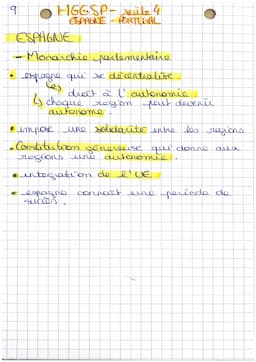 9
HGGSP - suite 4
ESPAGNE - PORTUGAL
ESPAGNE
- Monarchie parlementaire
• espagne qui se décentralise
↳ droit à l'autonomie
↳ chaque région peut devenir
autonome.
• impose une solidarité entre les régions
• Constitution généreuse qui donne aux
régions une autonomie.
• intégration de l'UE
• espagne connaît une période de
succès.